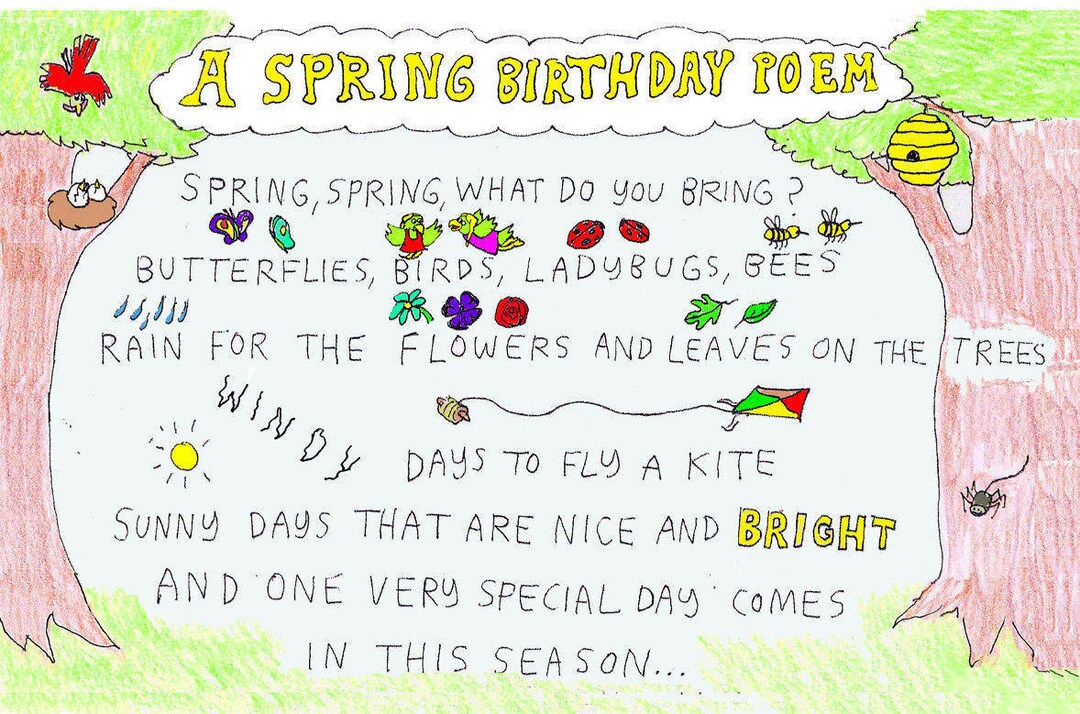 A SPRING BIRTHDAY POEM
SPRING, SPRING, WHAT DO YOU BRING?
BUTTERFLIES, BIRDS, LADYBUGS, BEES
RAIN FOR THE FLOWERS AND LEAVES ON THE TREES
WINDY DAYS TO FLY A KITE
SUNNY DAYS THAT ARE NICE AND BRIGHT
AND ONE VERY SPECIAL DAY COMES
IN THIS SEASON...